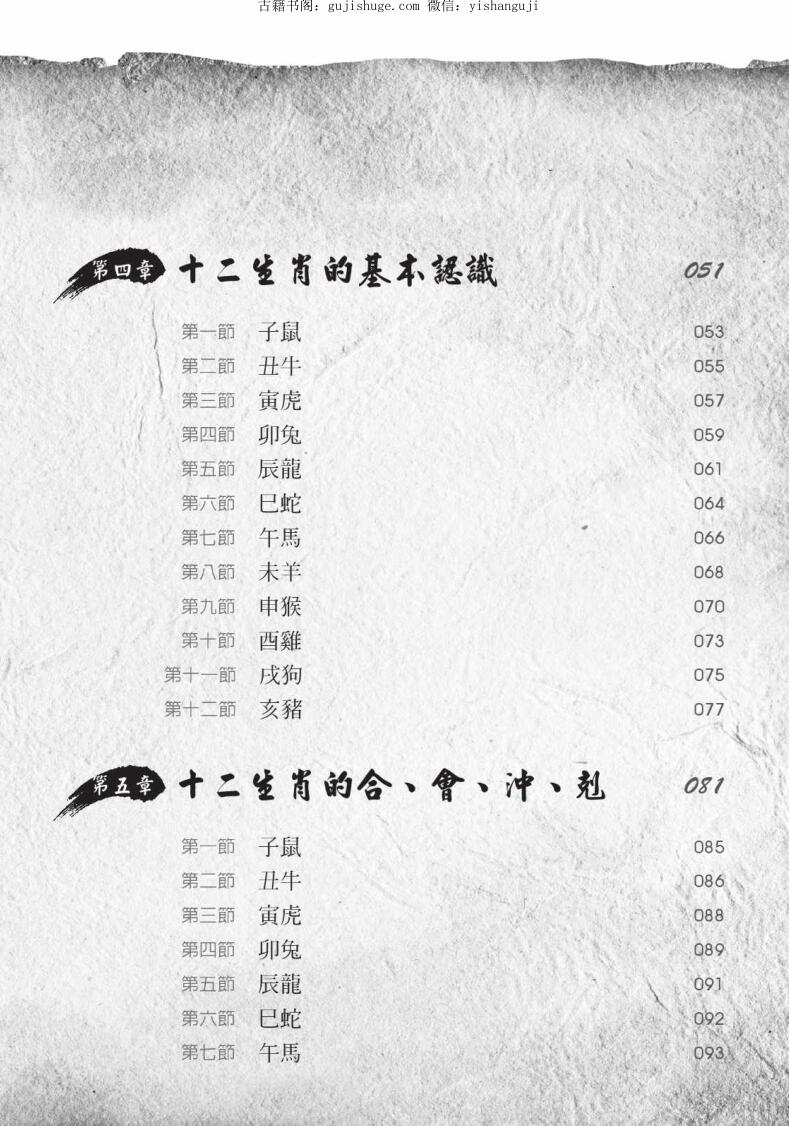 古籍书阁：gujishuge.com 微信：yishanguji
第四章 十二生肖的基本認識 051
第一節 子鼠 053
第二節 丑牛 055
第三節 寅虎 057
第四節 卯兔 059
第五節 辰龍 061
第六節 巳蛇 064
第七節 午馬 066
第八節 未羊 068
第九節 申猴 070
第十節 酉雞 073
第十一節 戌狗 075
第十二節 亥豬 077
第五章 十二生肖的合、會、沖、剋 081
第一節 子鼠 085
第二節 丑牛 086
第三節 寅虎 088
第四節 卯兔 089
第五節 辰龍 091
第六節 巳蛇 092
第七節 午馬 093